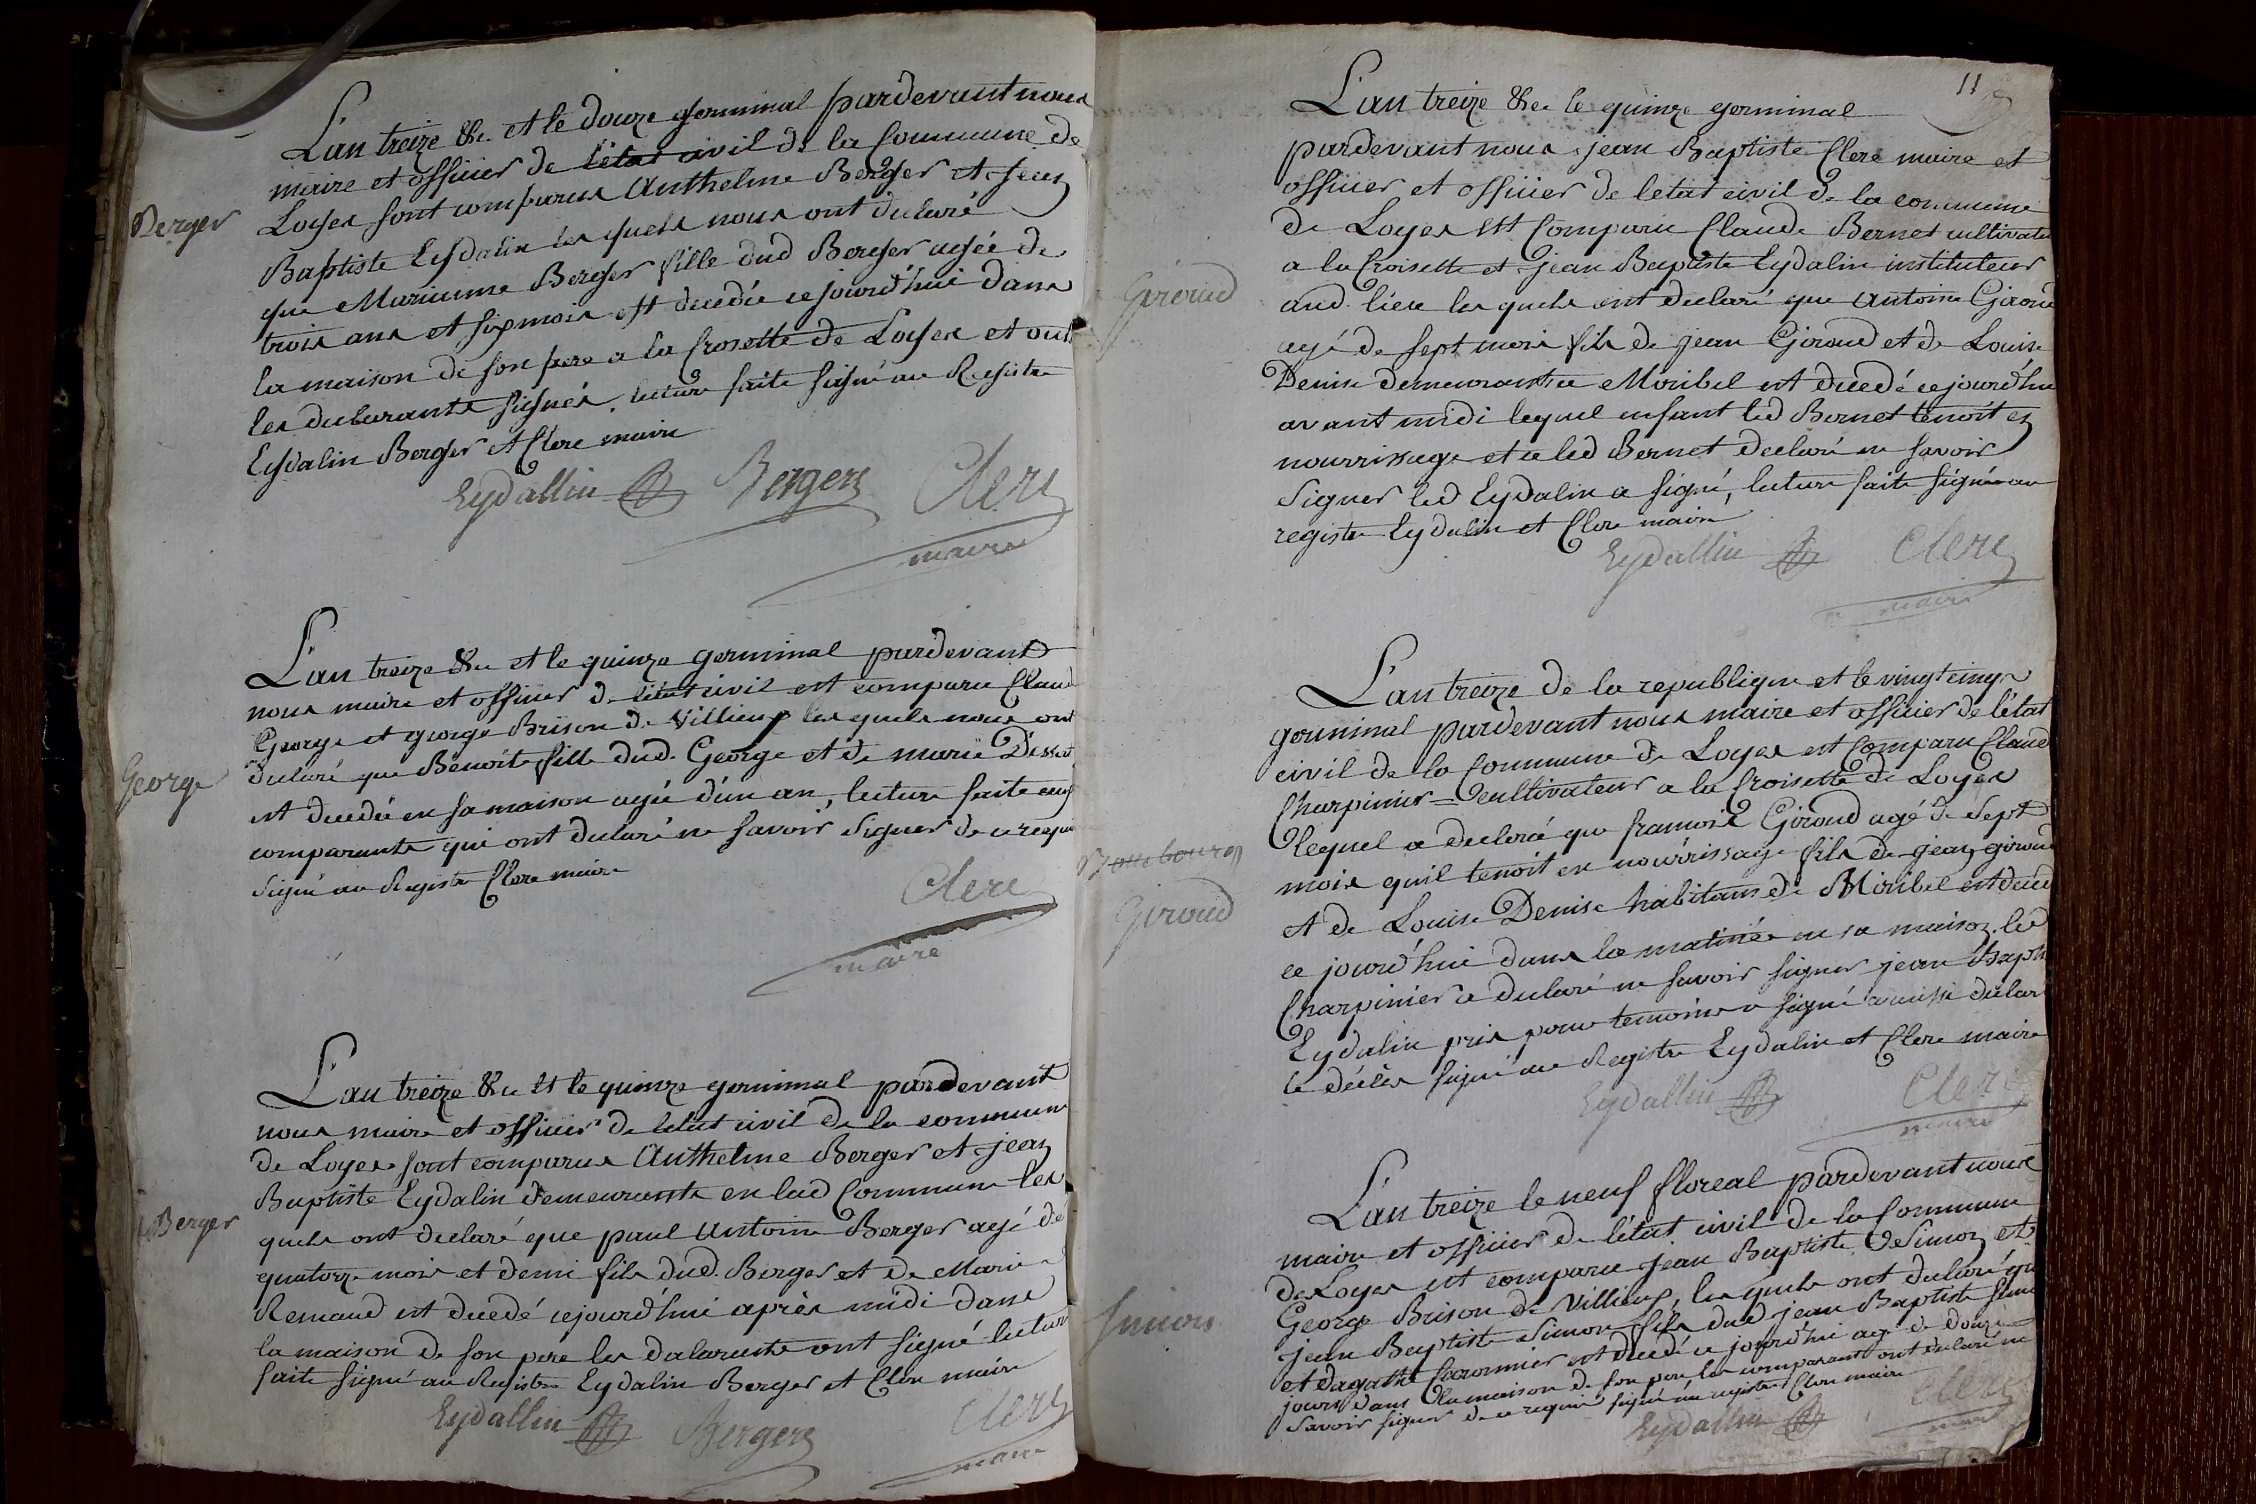 L'an treize &c. et le douze germinal pardevant nous
maire et officier de l'état civil de la Commune de
Loyes sont comparus Anthelme Berger et Jean
Berger
Baptiste Eydalin les quels nous ont declaré
que Marianne Berger fille dud Berger agée de
trois ans et six mois est decedée ce jourd'hui dans
la maison de son pere a la Croisette de Loyes et ont
les declarants signés, lecture faite signé au Registre
Eydalin Berger et Clerc maire
Eydallin Berger Clerc
maire
L'an treize &c et le quinze germinal pardevant
nous maire et officier de l'état civil est comparu Claude
George et george Brison de Villieux les quels nous ont
declaré que Benoite fille dud. George et de marie
George
est decedée en sa maison agée d'un an, lecture faite aux
comparants qui ont declaré ne savoir signer de ce requis
signé au Registre Clerc maire
Clerc
maire
L'an treize &c Et le quinze germinal pardevant
nous maire et officier de l'état civil de la commune
de Loyes sont comparus Anthelme Berger et jean
Baptiste Eydalin demeurants en lad Commune les
Berger
quels ont declaré que paul Antoine Berger agé de
quatorze mois et demi fils dud. Berger et de Marie
Renaud est decedé cejourd'hui après midi dans
la maison de son pere les dalarants ont signé lecture
faite signé au Registre Eydalin Berger et Clerc maire
Eydallin Berger Clerc
maire
11
L'an treize &c le quinze germinal
pardevant nous jean Baptiste Clerc maire et
officier et officier de l'état civil de la commune
de Loyes est Comparu Claude Bernet cultivateur
a la Croisette et jean Baptiste Eydalin instituteur
Giroud
aud. lieu les quels ont declaré que Antoine Giroud
agé de sept mois fils de jean Giroud et de Louise
Denise demeurants a Miribel est decedé cejourd'hui
avant midi lequel enfant led Bernet tenoit en
nourrissage et a led Bernet declaré ne savoir
signer led Eydalin a signé, lecture faite signé au
registre Eydalin et Clerc maire
Eydallin Clerc
maire
L'an treize de la republique et le vingt cinq
germinal pardevant nous maire et officier de l'état
civil de la Commune de Loyes est Comparu Claude
Charpinier cultivateur a la Croisette de Loyes
lequel a declaré que françois Giroud agé de sept
mois qu'il tenoit en nourrissage fils de jean giroud
Giroud
et de Louise Denise habitans de Miribel est decedé
ce jourd'hui dans la matinée en sa maison. led
Charpinier a declaré ne savoir signer jean Baptiste
Eydalin pris pour temoins a signé a aussi declaré
le décès signé au Registre Eydalin et Clerc maire
Eydallin Clerc
maire
L'an treize le neuf floreal pardevant nous
maire et officier de l'état civil de la Commune
de Loyes est comparu Jean Baptiste Simon et
George Brison de Villieux, les quels ont declaré que
Simon
jean Baptiste Simon fils dud jean Baptiste Simon
et d'agathe est decedé ce jourd'hui agé de douze
jours dans la maison de son pere les comparants ont declaré ne
savoir signer de ce requis signé au registre Clerc maire
Eydallin Clerc
maire